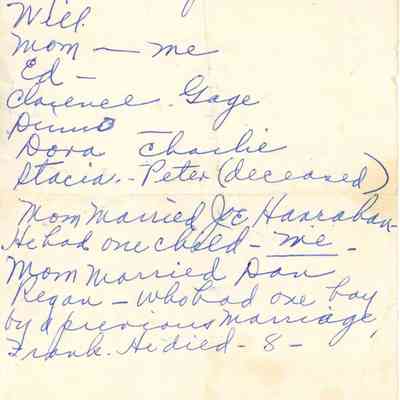 Will.
Mom — me
Ed -
Clarence. Gage
Dora Charlie
Stacia - Peter (deceased)
Mom Married Joe Hanrahan
He had one child - me -
Mom Married Dan
Regan - who had one boy
by a previous marriage,
Frank. He died - 8 -